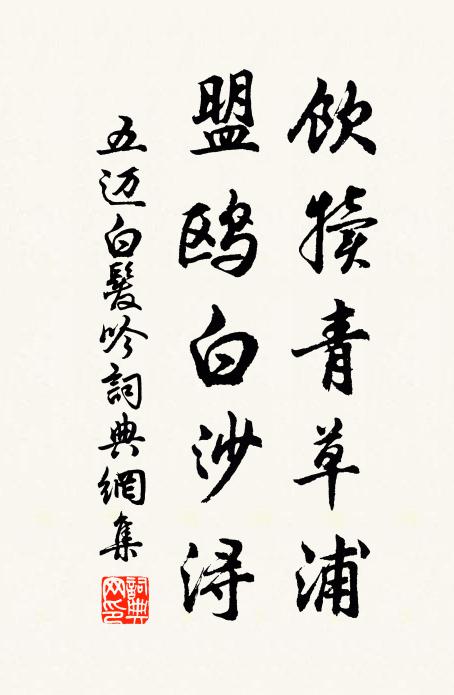 飲犢青草浦
盟鷗白沙潯
五迈白髮吟詞典網集
詞典網印